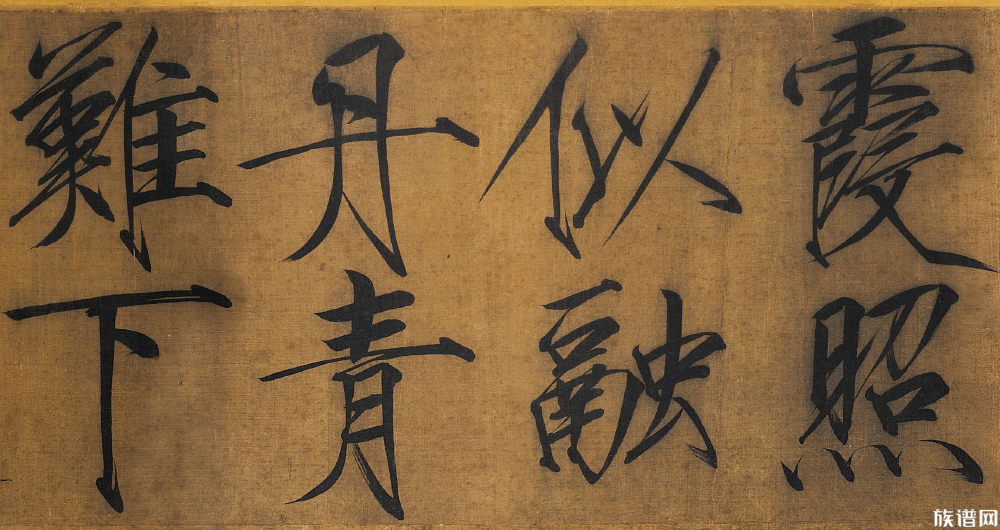 霞照
似融
丹青
難下
族谱网